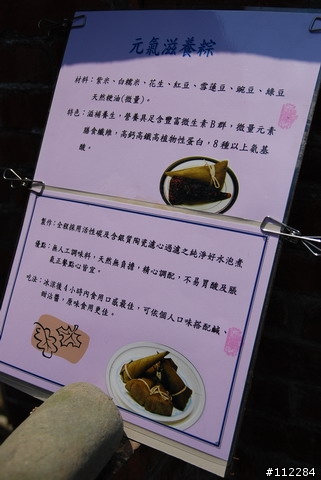 元氣滋養粽
材料：紫米、白糯米、花生、紅豆、雪蓮豆、豌豆、綠豆
天然梗油(微量)。
特色：滋補養生，營養具足含豐富微生素B群，微量元素
膳食纖維，高鈣高纖高植物性蛋白，8種以上氨基
酸。
製作：全館採用活性碳及含銀質陶瓷濾心過濾之純淨好水泡煮
優點：無人工調味料，天然無負擔，精心調配，不易胃酸及脹
氣正餐點心皆宜。
吃法：冰涼後4小時內食用口感最佳，可依個人口味搭配鹹、
甜沾醬，原味食用更佳。
#112284